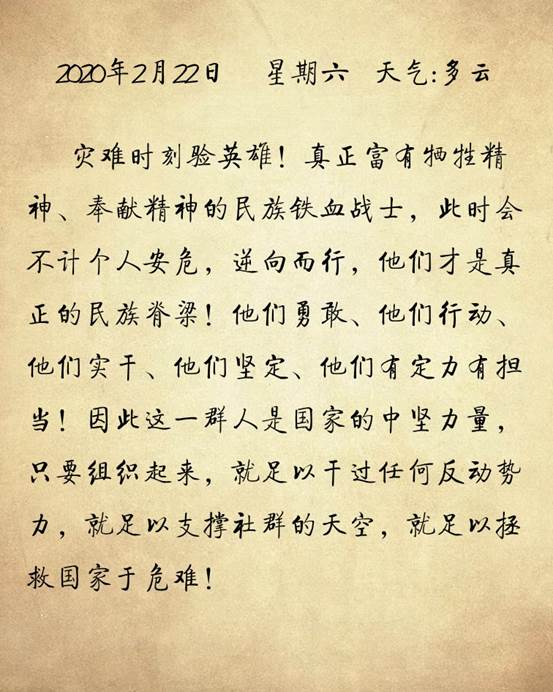 2020年2月22日 星期六 天气:多云
灾难时刻验英雄！真正富有牺牲精
神、奉献精神的民族铁血战士，此时会
不计个人安危，逆向而行，他们才是真
正的民族脊梁！他们勇敢、他们行动、
他们实干、他们坚定、他们有定力有担
当！因此这一群人是国家的中坚力量，
只要组织起来，就足以干过任何反动势
力，就足以支撑社群的天空，就足以拯
救国家于危难！